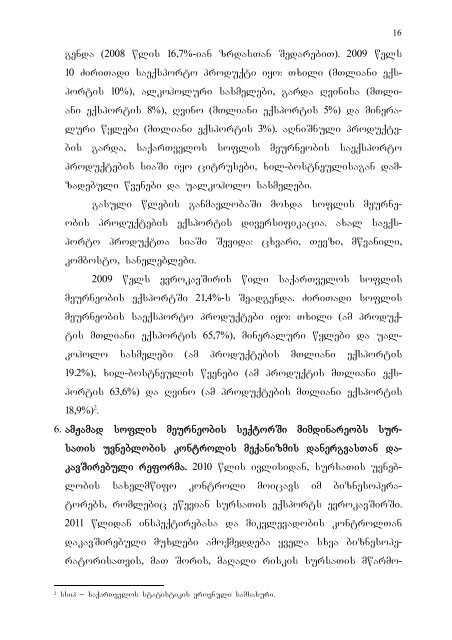 16
გენდა (2008 წლის 16,7%-იან ზრდასთან შედარებით). 2009 წელს
10 ძირითადი საექსპორტო პროდუქტი იყო: თხილი (მთლიანი ექს-
პორტის 10%), ალკოჰოლური სასმელები, გარდა ღვინისა (მთლი-
ანი ექსპორტის 8%), ღვინო (მთლიანი ექსპორტის 5%) და მინერა-
ლური წყლები (მთლიანი ექსპორტის 3%). აღნიშნული პროდუქტე-
ბის გარდა, საქართველოს სოფლის მეურნეობის საექსპორტო
პროდუქტების სიაში იყო ციტრუსები, ხილ-ბოსტნეულისაგან დამ-
ზადებული წვენები და უალკოჰოლო სასმელები.
გასული წლების განმავლობაში მოხდა სოფლის მეურნე-
ობის პროდუქტების ექსპორტის დივერსიფიკაცია. ახალ საექს-
პორტო პროდუქტთა სიაში შევიდა: ცხვარი, თევზი, მწვანილი,
კომბოსტო, სანელებლები.
2009 წელს ევროკავშირის წილი საქართველოს სოფლის
მეურნეობის ექსპორტში 21,4%-ს შეადგენდა. ძირითადი სოფლის
მეურნეობის საექსპორტო პროდუქტები იყო: თხილი (ამ პროდუქ-
ტის მთლიანი ექსპორტის 65,7%), მინერალური წყლები და უალ-
კოჰოლო სასმელები (ამ პროდუქტების მთლიანი ექსპორტის
19.2%), ხილ-ბოსტნეულის წვენები (ამ პროდუქტის მთლიანი ექს-
პორტის 63,6%) და ღვინო (ამ პროდუქტების მთლიანი ექსპორტის
18,9%)².
6. ამჟამად სოფლის მეურნეობის სექტორში მიმდინარეობს სურ-
სათის უვნებლობის კონტროლის მექანიზმის დანერგვასთან და-
კავშირებული რეფორმა. 2010 წლის ივლისიდან, სურსათის უვნებ-
ლობის სახელმწიფო კონტროლი მოიცავს იმ ბიზნესოპერა-
ტორებს, რომლებიც ეწევიან სურსათის ექსპორტს ევროკავშირში.
2011 წლიდან ინსპექტირებასა და მიკვლევადობის კონტროლთან
დაკავშირებული მუხლები ამოქმედდება ყველა სხვა ბიზნესოპე-
რატორისათვის, მათ შორის, მაღალი რისკის სურსათის მწარმო-
² სსიპ – საქართველოს სტატისტიკის ეროვნული სამსახური.